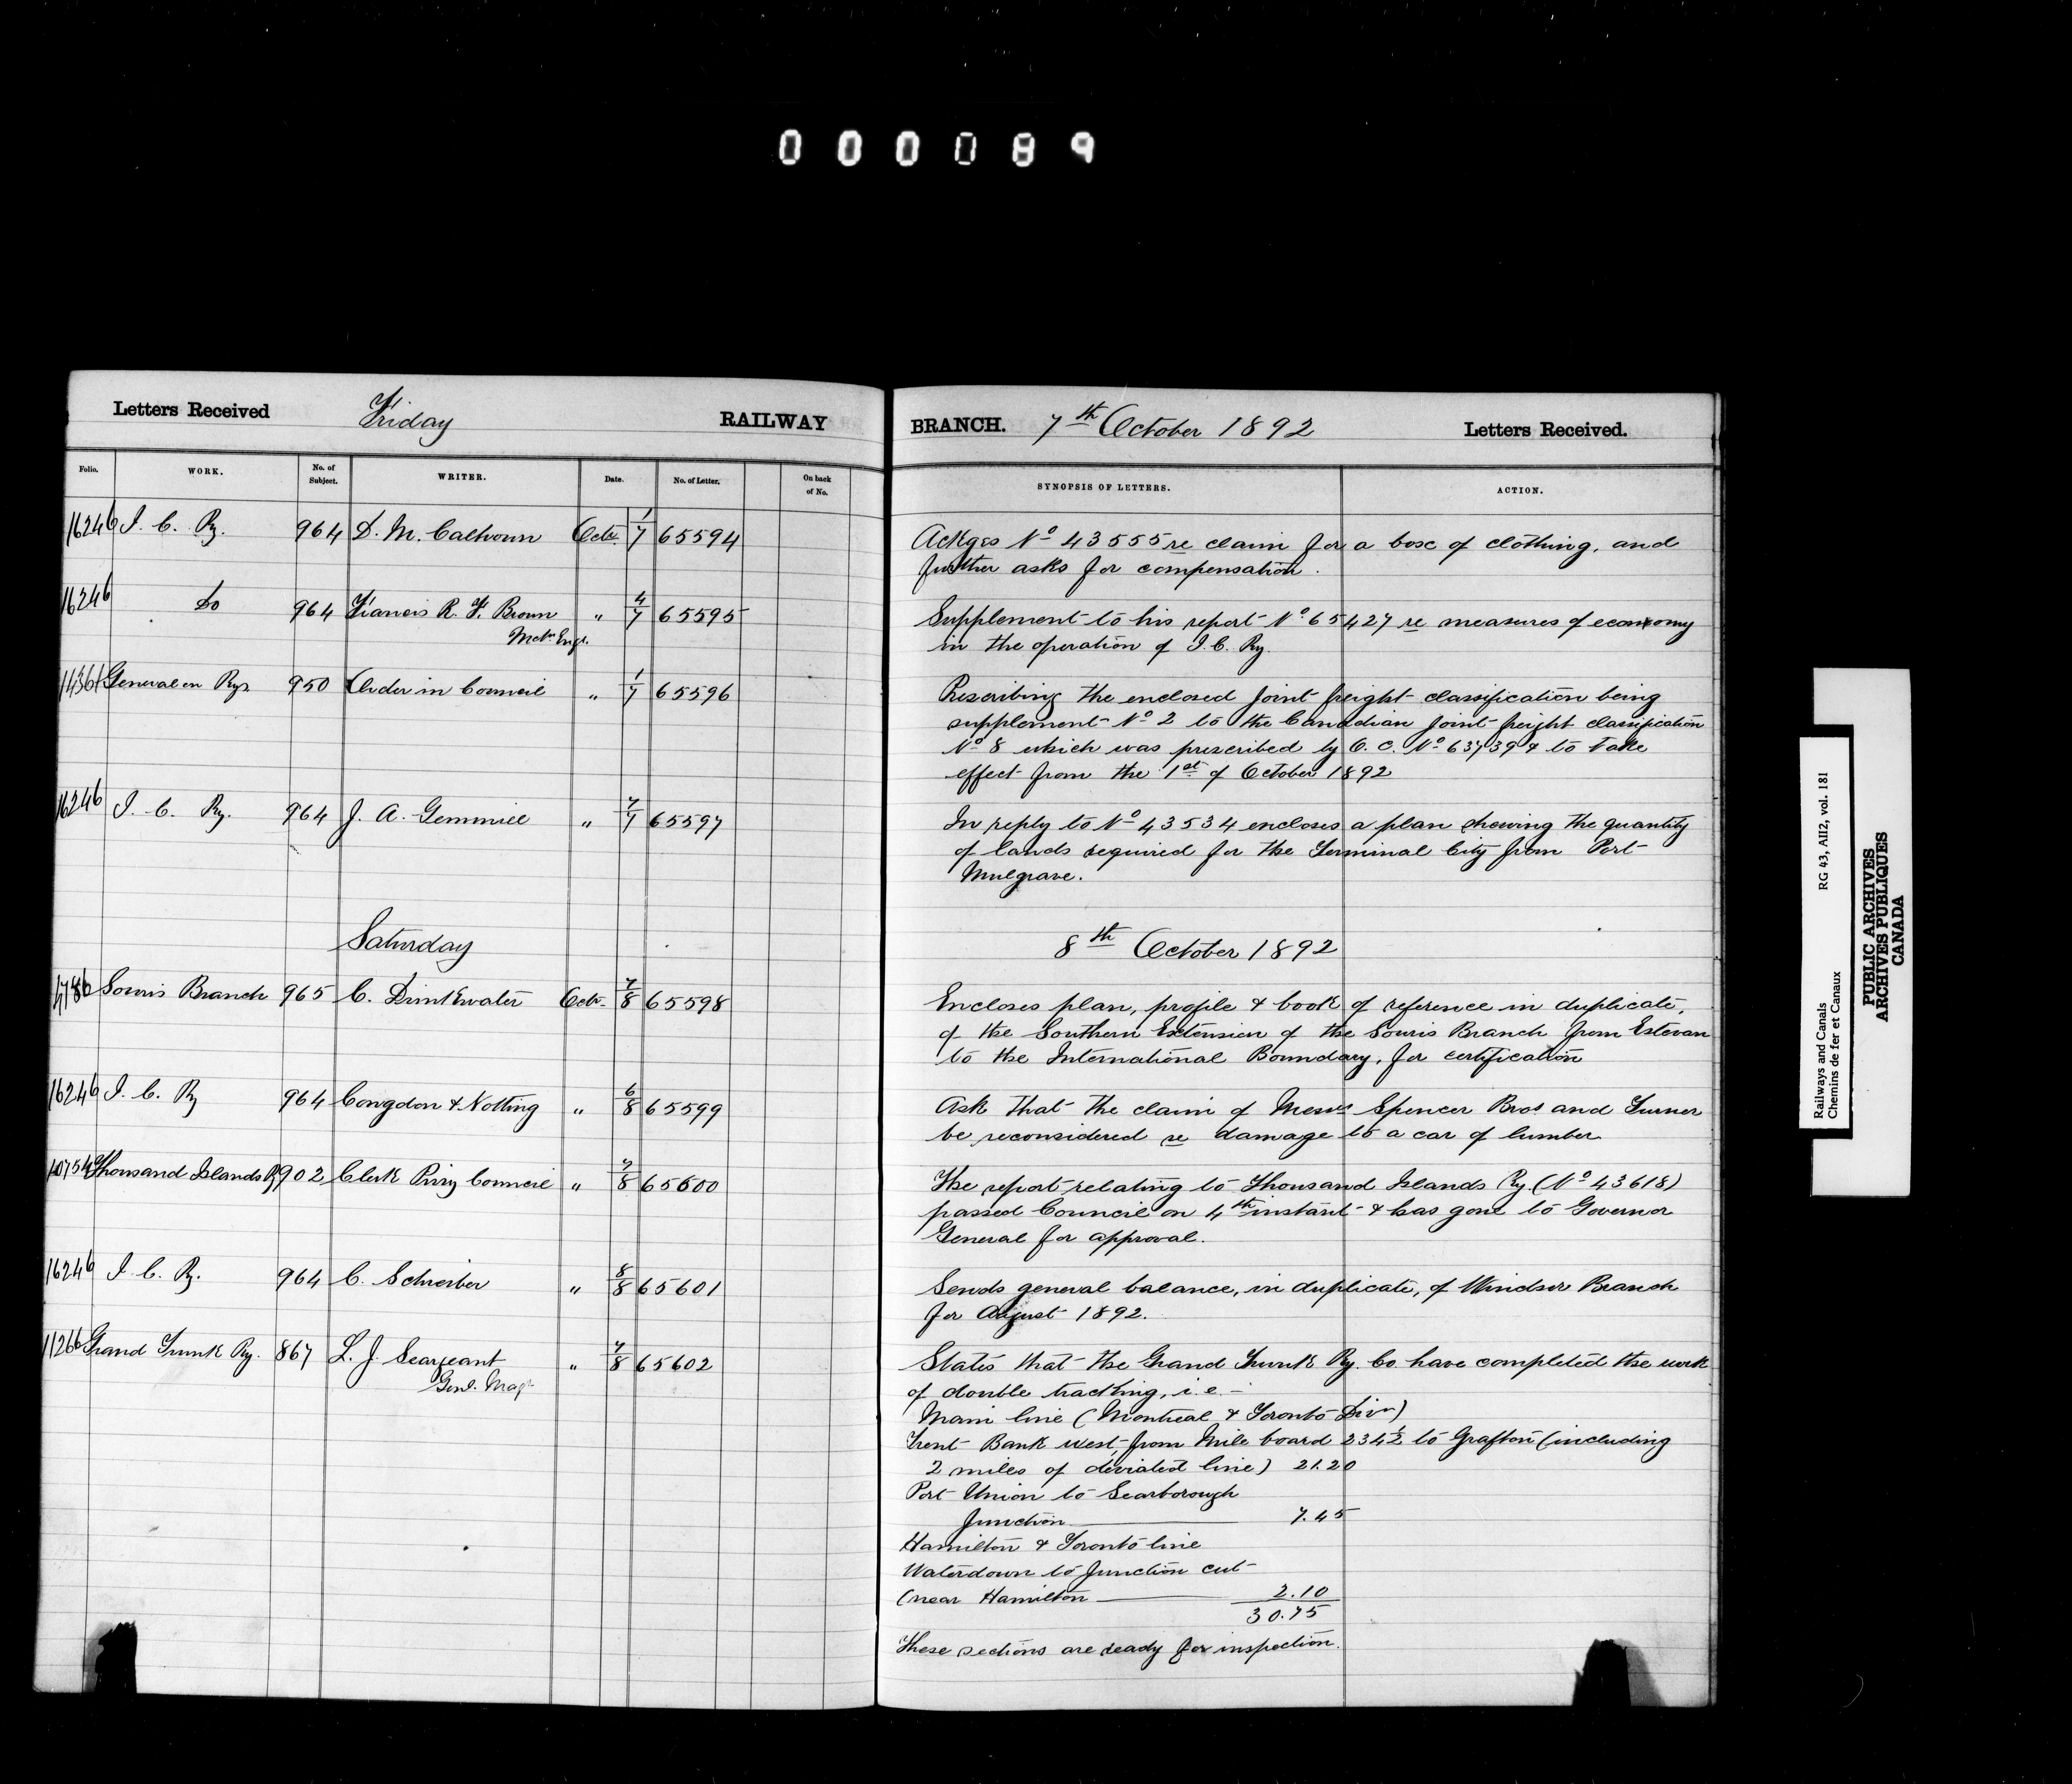 000089
Letters Received Friday RAILWAY BRANCH. 7th October 1892 Letters Received.
Folio. WORK. No. of Subject. WRITER. Date. No. of Letter. On back of No. SYNOPSIS OF LETTERS. ACTION.
16246 I. C. Ry. 964 D. M. Calhoun Octr. 1/7 65594 Ackges No 43555 re claim for a box of clothing, and
further asks for compensation.
16246 Do 964 Francis R. F. Brown " 4/7 65595 Supplement to his report No 65427 re measures of economy
Mechl. Engr. in the operation of I. C. Ry.
14361 General on Rys. 950 Order in Council " 1/7 65596 Prescribing the enclosed joint freight classification being
supplement No 2 to the Canadian joint freight classification
No 8 which was prescribed by O. C. No 63739 & to take
effect from the 1st of October 1892
16246 I. C. Ry. 964 J. A. Gemmill " 7/7 65597 In reply to No 43534 encloses a plan showing the quantity
of lands required for the Terminal City from Port
Mulgrave.
Saturday 8th October 1892
Souris Branch 965 C. Drinkwater Octr. 7/8 65598 Encloses plan, profile & book of reference in duplicate,
of the Southern Extension of the Souris Branch from Estevan
to the International Boundary, for certification
16246 I. C. Ry 964 Congdon & Notting " 6/8 65599 Ask that the claim of Messrs Spencer Bros and Turner
be reconsidered re damage to a car of lumber
10754 Thousand Islands Ry 902 Clerk Privy Council " 7/8 65600 The report relating to Thousand Islands Ry. (No 43618)
passed Council on 4th instant & has gone to Governor
General for approval.
16246 I. C. Ry. 964 C. Schreiber " 8/8 65601 Sends general balance, in duplicate, of Windsor Branch
for August 1892.
11266 Grand Trunk Ry. 867 L. J. Seargeant " 7/8 65602 States that the Grand Trunk Ry. Co. have completed the work
Genl. Magr. of double tracking, i.e. -
Main line (Montreal & Toronto Divn)
Trent Bank west, from Mile board 234½ to Grafton (including
2 miles of deviated line) 21.20
Port Union to Scarborough
Junction 7.45
Hamilton & Toronto line
Waterdown to Junction cut
(near Hamilton 2.10
30.75
These sections are ready for inspection.
Railways and Canals RG 43, AII2, vol. 181
Chemins de fer et Canaux
PUBLIC ARCHIVES
ARCHIVES PUBLIQUES
CANADA